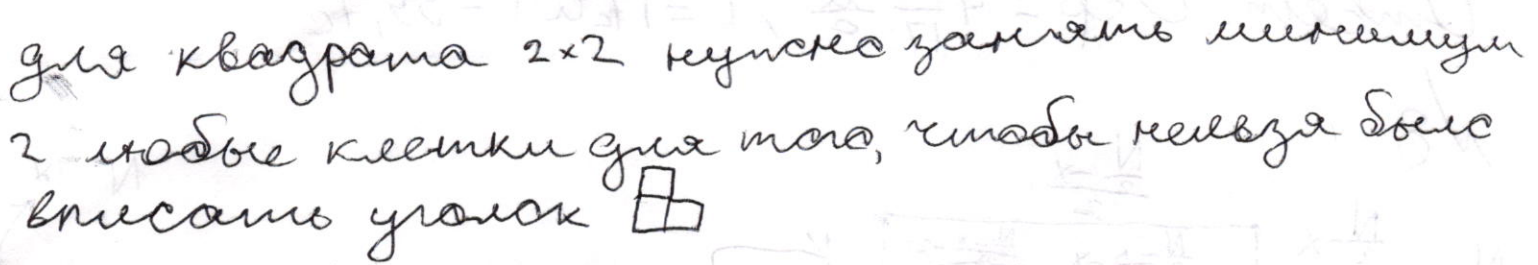 для квадрата 2×2 нужно занять минимум
2 любые клетки для того, чтобы нельзя было
вписать уголок